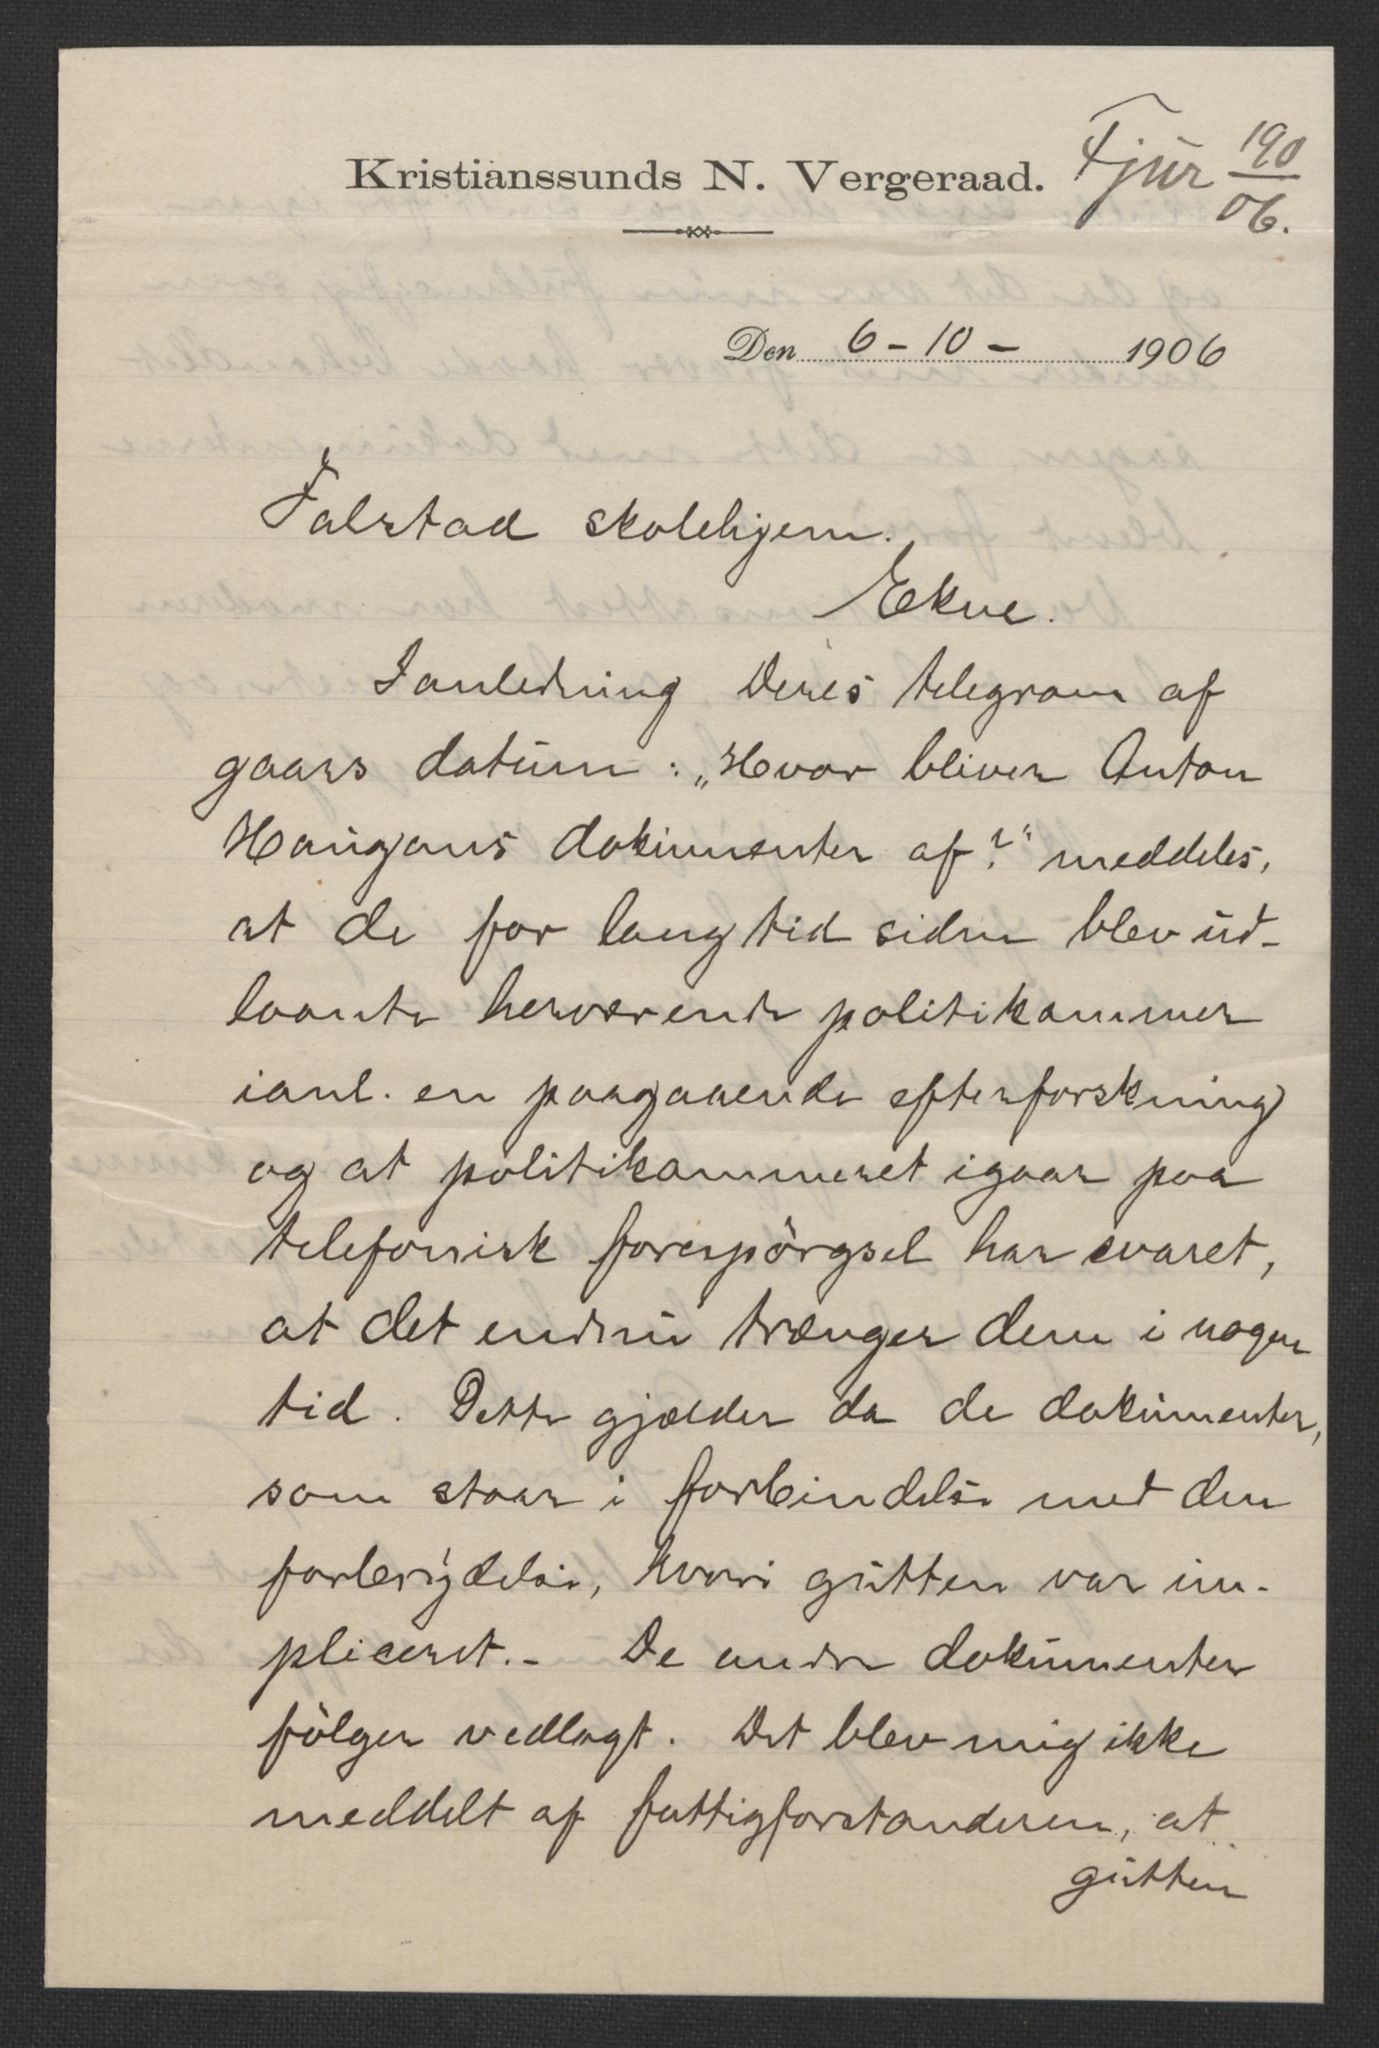 Kristianssunds N. Vergeraad.
Fjür 190/06.
Den 6-10- 1906
Falstad skolehjem.
Ekne.
Ianledning Deres telegram af
gaars datum: „Hvor bliver Anton
Haugans dokumenter af?“ meddeles,
at de for lang tid siden blev ud-
laante herværende politikammer
ianl. en paagaaende efterforskning
og at politikammeret igaar paa
telefonisk forespörgsel har svaret,
at det endnu trænger dem i nogen
tid. Dette gjælder da de dokumenter,
som staar i forbindelse med den
forbrydelse, hvori gutten var im-
pliceret.- De andre dokumenter
fölger vedlagt. Det blev mig ikke
meddelt af fattigforstanderen, at
gutten